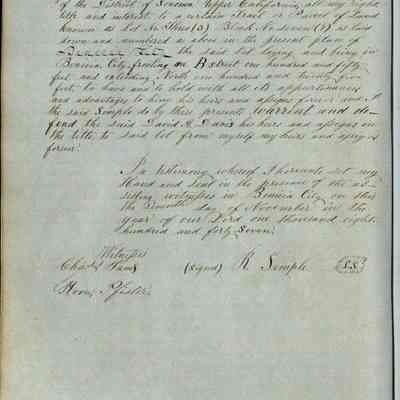 of the District of Sonoma Upper California, all my right
title and interest, to a certain Tract or Parcel of Land
known as Lot No Three (3) Block No Seven (7) as laid
down and numbered as above in the present plan of
the said lot laying and being in
Benicia City fronting on B street one hundred and fifty
feet and extending North one hundred and twenty five
feet, to have and to hold with all its appurtenances
and advantages to him his heirs and assigns forever and I
the said Semple do by these present warrant and de
fend the said David A. Davis his heirs and assigns in
the title to said lot from myself my heirs and assigns
forever.
In testimony whereof I hereunto set my
Hand and seal in the presence of the as-
sisting witnesses in Benicia City on this
the day of November in the
year of our Lord one thousand eight
hundred and forty Seven.
Witness
Chas (signd) R Semple L.S.